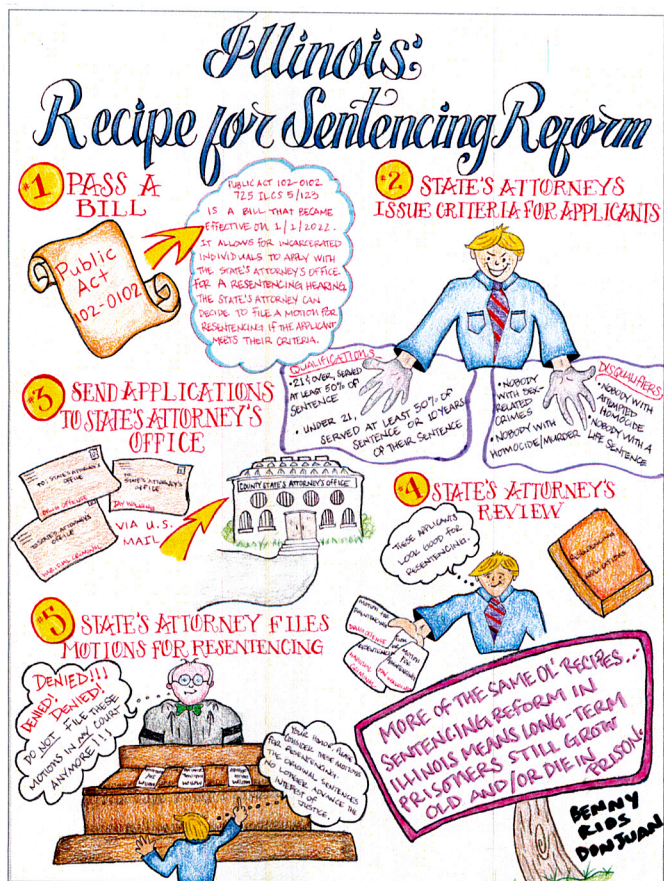 Illinois:
Recipe for Sentencing Reform
#1 PASS A
BILL
Public
Act
102-0102
PUBLIC ACT 102-0102
725 ILCS 5/123
IS A BILL THAT BECAME
EFFECTIVE ON 1/1/2022.
IT ALLOWS FOR INCARCERATED
INDIVIDUALS TO APPLY WITH
THE STATE'S ATTORNEY'S OFFICE
FOR A RESENTENCING HEARING
THE STATE'S ATTORNEY CAN
DECIDE TO FILE A MOTION FOR
RESENTENCING IF THE APPLICANT
MEETS THEIR CRITERIA.
#2 STATE'S ATTORNEYS
ISSUE CRITERIA FOR APPLICANTS
QUALIFICATIONS
• 21 & OVER, SERVED
AT LEAST 50% OF
SENTENCE
• UNDER 21,
SERVED AT LEAST 50% OF
SENTENCE OR 10 YEARS
OF THEIR SENTENCE
DISQUALIFIERS
• NOBODY
WITH SEX-
RELATED
CRIMES
• NOBODY WITH
HOMOCIDE/MURDER
• NOBODY WITH
ATTEMPTED
HOMOCIDE
• NOBODY WITH A
LIFE SENTENCE
#3 SEND APPLICATIONS
TO STATE'S ATTORNEY'S
OFFICE
TO: STATE'S ATTORNEY'S
OFFICE
DRUG OFFENSE
TO: STATE'S ATTORNEY'S
OFFICE
JAY WALKING
TO: STATE'S ATTORNEY'S
OFFICE
HABITUAL CRIMINAL
VIA U.S.
MAIL
COUNTY STATE'S ATTORNEY'S OFFICE
#4 STATE'S ATTORNEY'S
REVIEW
THESE APPLICANTS
LOOK GOOD FOR
RESENTENCING.
MOTION FOR
RESENTENCING
DRUG OFFENSE
MOTION
FOR
RESENTENCING
HABITUAL
CRIMINAL
JAY WALKING
#5 STATE'S ATTORNEY FILES
MOTIONS FOR RESENTENCING
DENIED!!!
DENIED!
DENIED!
DO NOT FILE THESE
MOTIONS IN MY COURT
ANYMORE!!!
YOUR HONOR PLEASE
CONSIDER THESE MOTIONS
FOR RESENTENCING.
THE ORIGINAL SENTENCES
NO LONGER ADVANCE THE
INTEREST OF
JUSTICE.
MORE OF THE SAME OL' RECIPES...
SENTENCING REFORM IN
ILLINOIS MEANS LONG-TERM
PRISONERS STILL GROW
OLD AND/OR DIE IN
PRISON.
BENNY
RIOS
DONJUAN